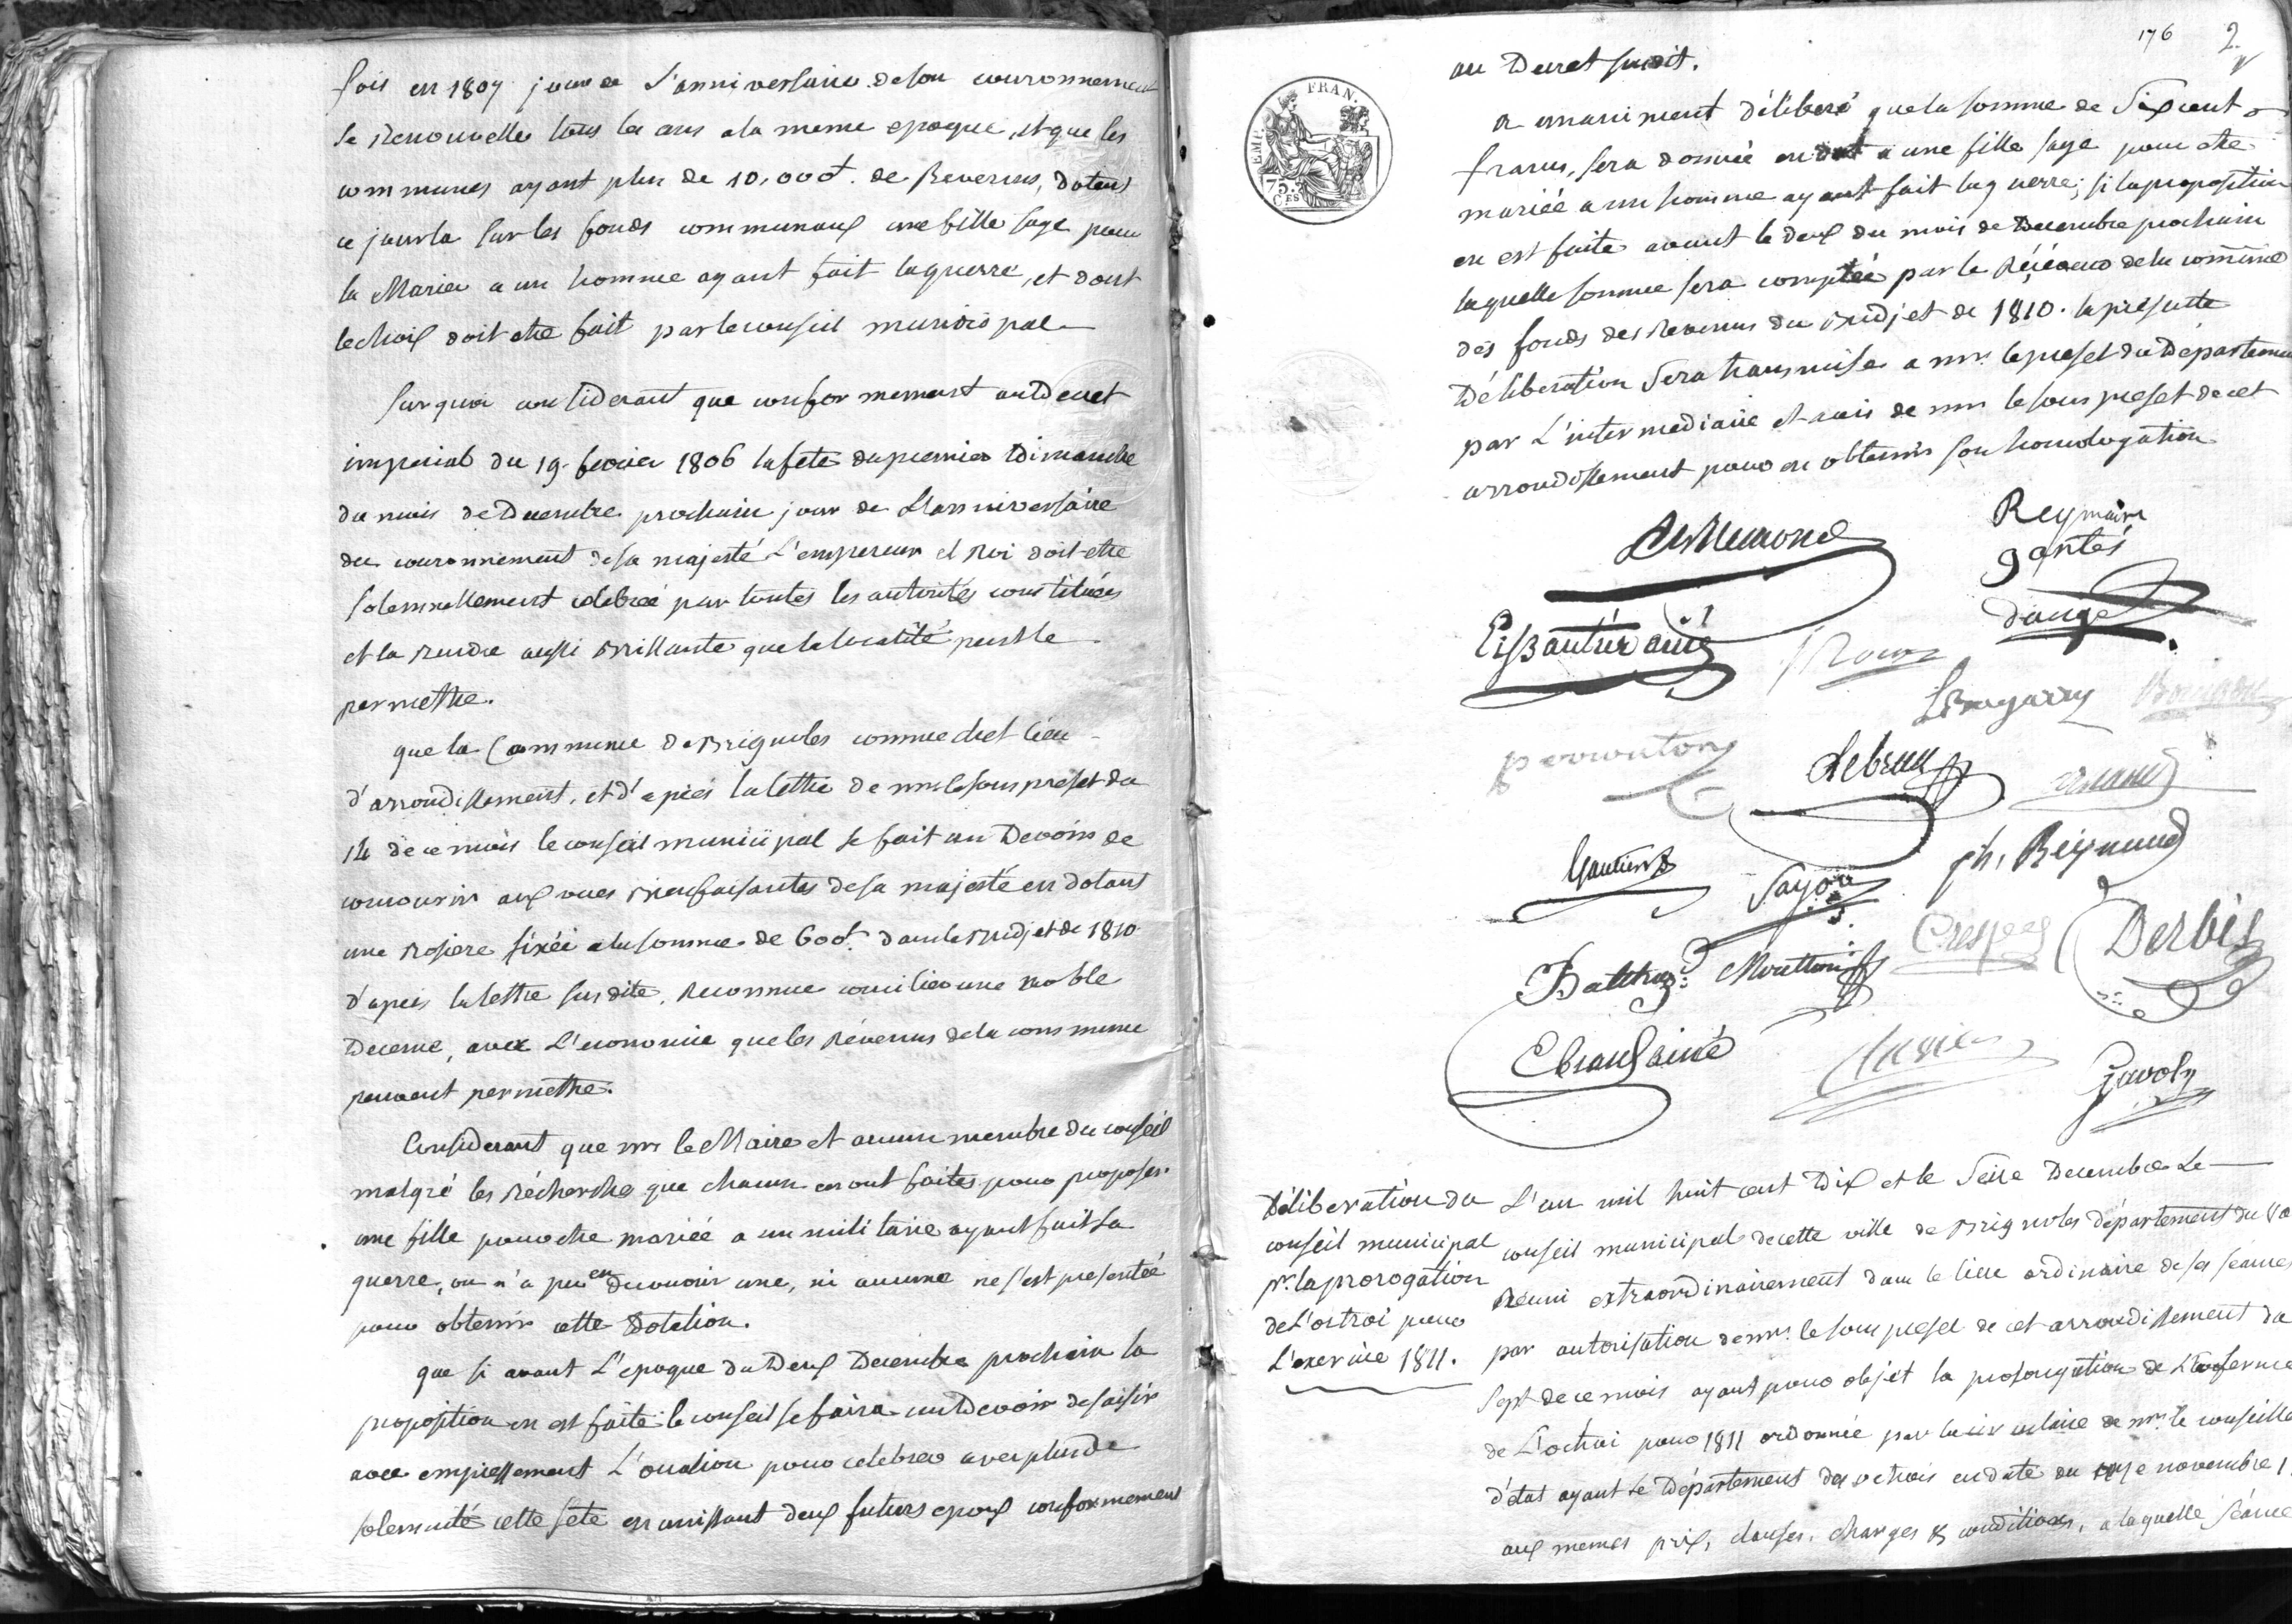 fois en 1807 jour de L'anniversaire de son couronnement
se Renouvelle tous les ans a la meme epoque, et que les
communes ayant plus de 10,000f. de Revenus, dotent
ce jour la sur les fonds communaux une fille sage pour
la Marier a un homme ayant fait la guerre, et dont
le choix doit etre fait par le conseil municipal
Sur quoi considerant que conformement au Decret
imperial du 19 fevrier 1806 la fete du premier Dimanche
du mois de Decembre prochain jour de L'anniversaire
du couronnement de sa majesté L'empereur et Roi doit etre
solemnellement celebreé par toutes les autorités constituées
et la rendre aussi Brillante que la localité peut le
permettre.
que la Commune de Brignoles comme chef lieu
d'arrondissement, et d'apres la lettre de mr. le sous prefet du
14 de ce mois le conseil municipal se fait un Devoir de
concourir aux vues Bienfaisantes de sa majesté en dotant
une Rosiere fixéé a la somme de 600f. dans le Budjet de 1810
d'apres la lettre susdite, Reconnue concilier une noble
Decence, avec L'economie que les Révenus de la commune
peuvent permettre.
Considerant que mr le Maire et aucun membre du conseil
malgré les Récherches que chacun en ont faites pour proposer
une fille pour etre mariéé a un militaire ayant fait la
guerre, on n'a pu en decouvrir une, ni aucune ne s'est presentéé
pour obtenir cette Dotation.
que si avant L'epoque du Deux Decembre prochain la
proposition en est faite le conseil se faira un Devoir de saisir
avec empressement L'occation pour celebrer avec plus de
solemnité cette fete en unissant deux futurs epoux conformement
176 2
au Decret susdit.
a unaniment Déliberé que la somme de Six cent
francs, sera donnéé en dot a une fille sage pour etre
mariéé a un homme ayant fait la guerre; si la proposition
en est faite avant le deux du mois de Decembre prochain
laquelle somme sera comptéé par le Réçeveur de la commune
des fonds des Revenus du Budjet de 1810. la présente
Déliberation Sera transmise a mr. le prefet du Departement
par L'intermediaire et avis de mr le sous prefet de cet
arrondissement pour en obtenir son homologation
FRAN.
EMP.
75.
CES
Reymoin
gantés
Eissautier ainé
dauge
Roux
Lebrun
Gautier
Sayou
ph. Reymond
Balthaz. Moutton
Crespy
Derbès
Ebrard ainé
Gavoty
Déliberation du
conseil municipal
pr. la prorogation
de L'octroi pour
L'exercice 1811.
L'an mil huit cent Dix et le Seize Decembre Le
conseil municipal de cette ville de Brignoles département du Va
Réuni extraordinairement dans le lieu ordinaire de ses séances
par autorisation de mr. le sous prefet de cet arrondissement du
Sept de ce mois ayant pour objet la prolongation de La ferme
de L'octroi pour 1811 ordonnée par la circulaire de mr. le conseille
d'état ayant le Département des octrois en date du onze novembre 1
aux memes prix, clauses, charges & conditions, a laquelle séance